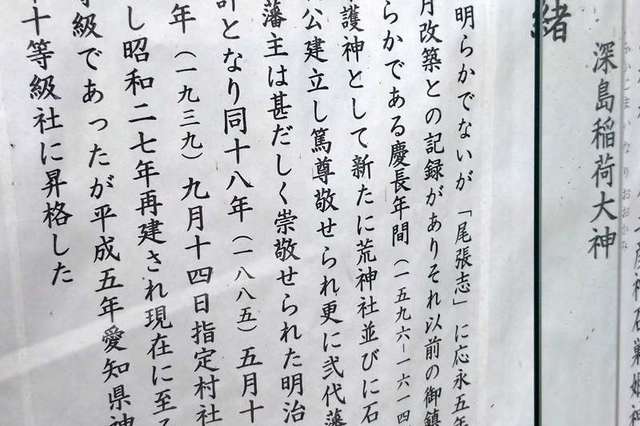 深島稲荷大神
緒
明らかでないが「尾張志」に応永五年
月改築との記録がありそれ以前の御鎮
らかである慶長年間(一五九六ー一六一四
護神として新たに荒神社並びに石
公建立し篤尊敬せられ更に弐代藩
藩主は甚だしく崇敬せられた明治
となり同十八年(一八八五)五月十
年(一九三九)九月十四日指定村社
し昭和二七年再建され現在に至る
級であったが平成五年愛知県神
十等級社に昇格した